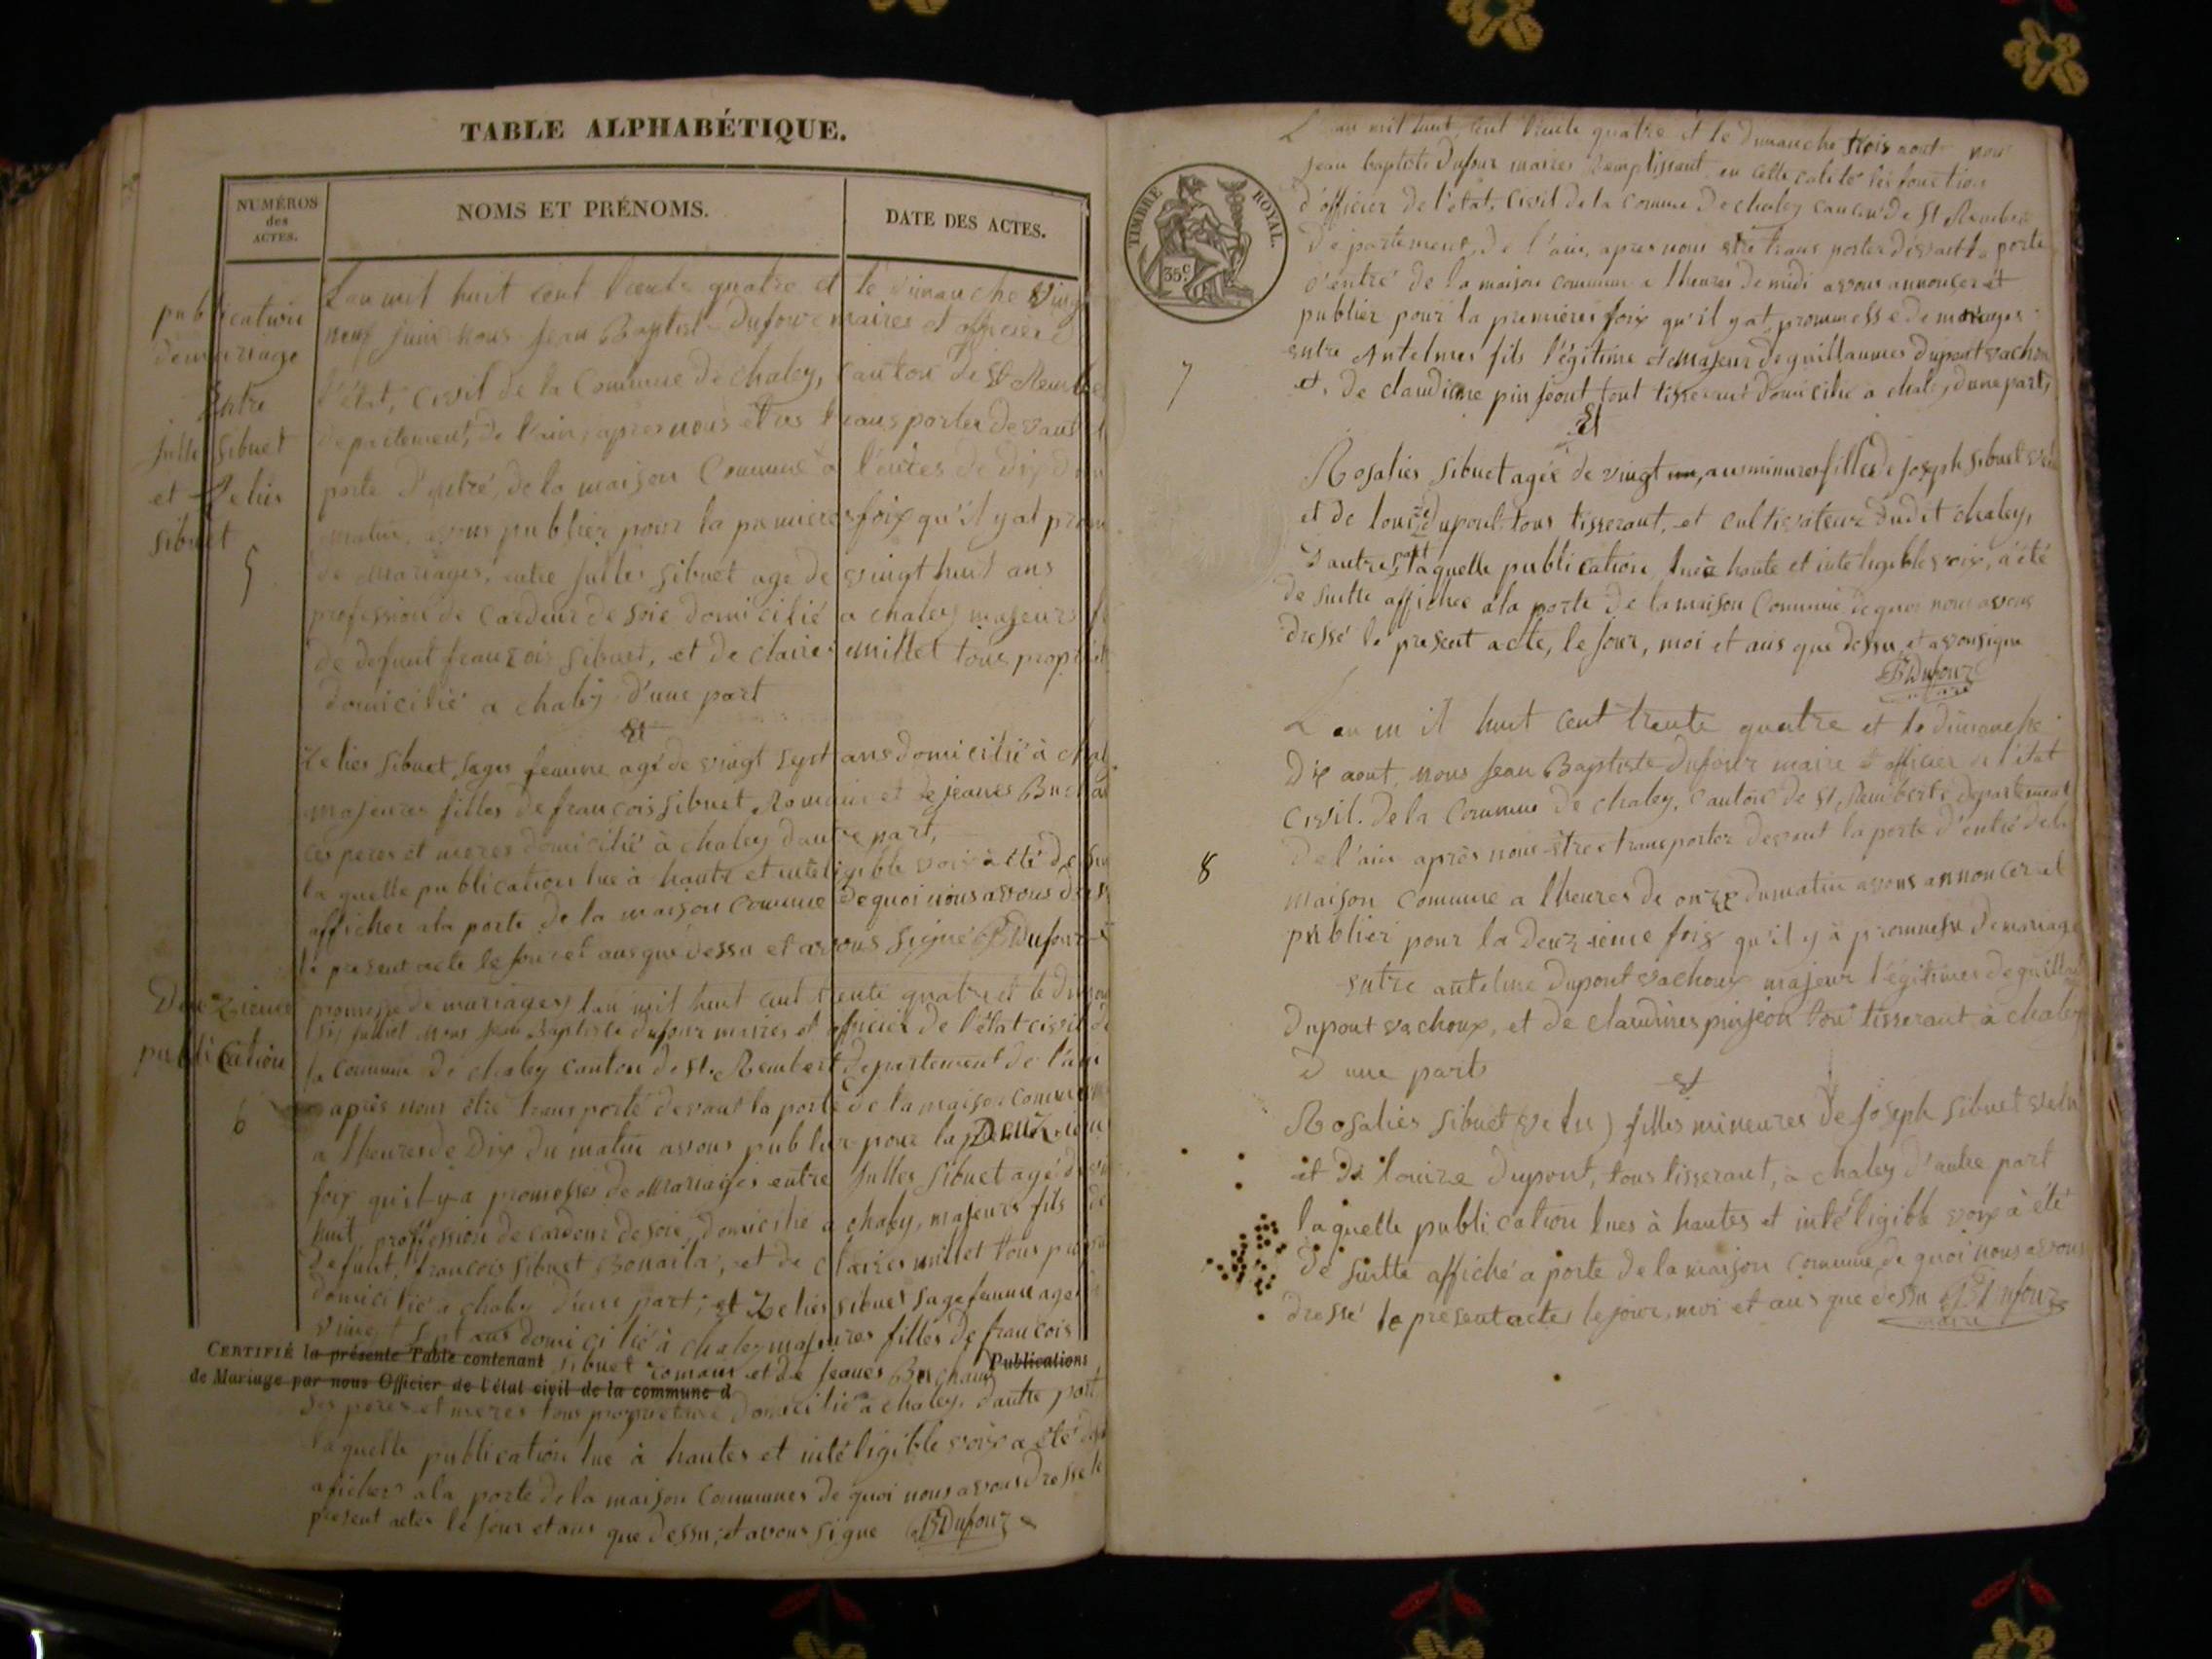 TABLE ALPHABÉTIQUE.
NUMÉROS
des
ACTES.
NOMS ET PRÉNOMS.
DATE DES ACTES.
publication
de mariage
Entre
Julle Sibuet
et Zelies
Sibuet
5
L'an mil huit cent trente quatre et le dimanche vingt
neuf juin nous Jean Baptist Dufour maires et officier d
l'état, civil de la Commune de chaley, canton de St Rember
departement, de l'ain, apres nous etres transporter devant l
porte d'entré, de la maison Commune a l'eures de dix du
matin, avons publier pour la premieres foix qu'il y at prom
de Mariages, entre Julles Sibuet age de vingt huit ans
profession de Cardeur de soie domicilié a chaley majeurs f
de defunt françois Sibuet, et de claires millet tous propriet
domicilié a chaley d'une part
Et
Zelies Sibuet sages femme agé de vingt sept ans domicilié à chal
majeures filles de françois Sibuet Romain et de jeanes Buchar
ces peres et meres domicilié à chaley dautre part,
la quelle publication lue à haute et inteligible voix à été de sui
afficher a la porte de la maison Commune de quoi nous avons dre
le present acte le jour et ans que dessu et avons Signé JB Dufour
Deuzieme
publication
6
promesse de mariages, l'an mil huit cent trente quatre et le diman
six juillet nous Jean Baptiste dufour maires et officier de l'état civil de
la Commune de chaley canton de St. Rembert departement de l'ain
après nous étre transporté devant la porte de la maison commune
a l'heures de Dix du matin avons publier pour la Deuzieme
foix qu'il y a promesses de Mariages entre Julles Sibuet agé de vin
huit, proffession de cardeur de soie, domicilié a chaley, majeurs fils de
defunt, françois Sibuet Bonaita, et de claires millet tous propri
domicilié a chaley d'une part; et Zelies Sibuet sage femme age
vingt sept ans domicilié à chaley majeures filles de françois
CERTIFIÉ la présente Table contenant Sibuet romain et de jeanes Buchard Publications
de Mariage par nous Officier de l'état civil de la commune d
ses peres et meres tous propriétaire domicilié a chaley, d'autre part,
laquelle publication lue à hautes et intéligible voix a été de
aficher a la porte de la maison Communes de quoi nous avons dressé le
present actes le jour et ans que dessu, et avons signe JB Dufour
TIMBRE ROYAL.
35 c
7
L'an mil huit, cent trente quatre et le Dimanche trois aout nous
Jean baptiste Dufour maires remplissant en cette calité les fonction
d'officier de l'état, civil de la Commune De chaley canton de St Rember
Département, de l'ain, apres nous etre trans porter devant la porte
d'entré de la maison commune a lheures de midi avons annoncer et
publier pour la premieres foix qu'il y at prommesse de mariages
entre Antelmes fils l'égitime et majeur de guillaumes dupont vachoux
et, de claudinne pin jeont tout tisserant domicilié a chaley, d'une part,
Et
Rosalies Sibuet agée de vingt un, ans mineures filles de joseph Sibuet vetu
et de louize dupont tous tisserant, et cultivateur dudit chaley,
d'autres part laquelle publication, lue à haute et inteligibles voix, a été
de suitte affichee a la porte de la maison Commune de quoi nous avons
dressé le present acte, le jour, moi et ans que dessu, et avons signe
JB Dufour
maire
8
L'an mil huit cent trente quatre et le dimanche
Dix aout, nous Jean Baptiste Dufour maire et officier de l'état
Civil. de la Commune de chaley, canton de St, Rembert, departement
De l'ain après nous être transporter devant la porte d'entré de la
maison commune a lheures de onze du matin avons annoncer et
publier pour la deuzieme foix qu'il y à prommesse de mariage
entre antelme dupont vachoux majeur légitimes de guillau
dupont vachoux, et de claudines pinjeon tous tisserant à chaley
d une part
et
Rosalies Sibuet (vetu) filles mineures de joseph Sibuet vetu
et de louize dupont, tous tisserant, a chaley d'autre part
laquelle publication lues à hautes et intéligible voix à été
de suitte affiché a porte de la maison commune, de quoi nous avons
dressé le present actes le jour, moi et ans que dessu JB Dufour
maire